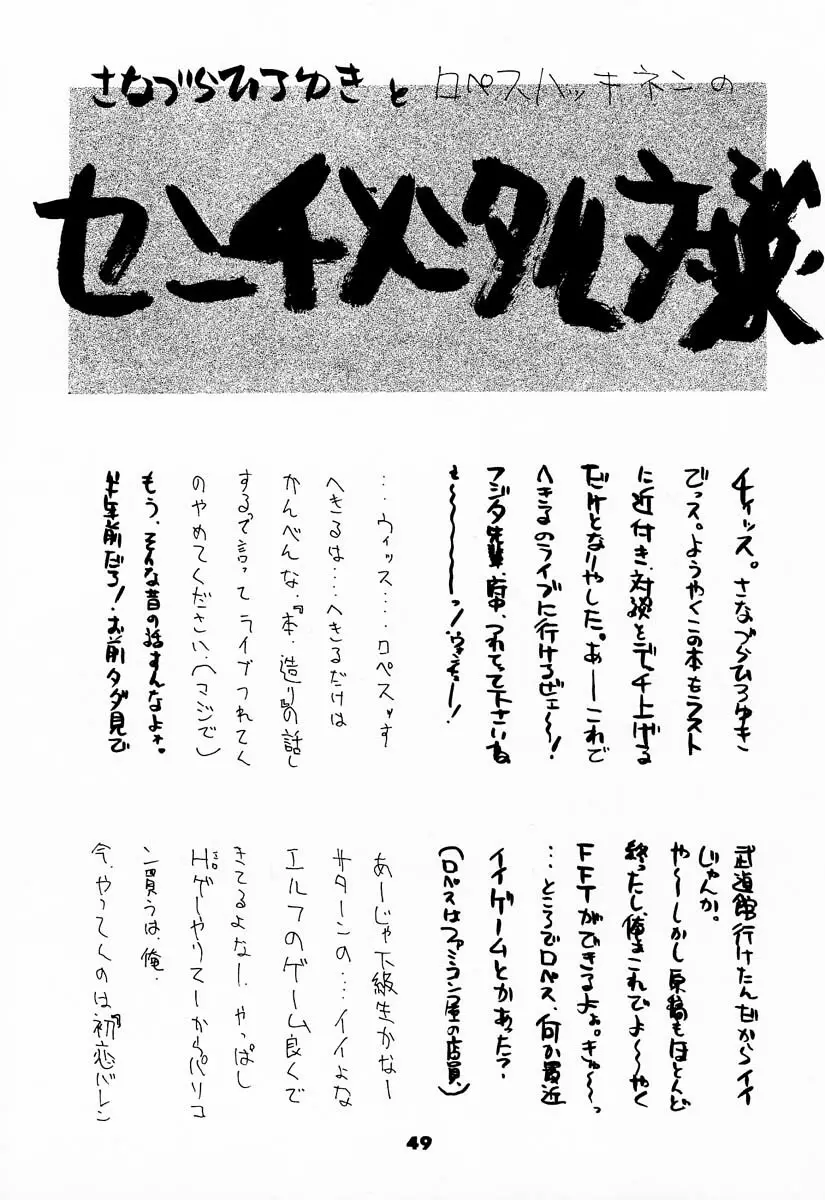 さなづらひろゆきとロペスハッキネンの
センチメンタル対談
チィッス。さなづらひろゆき
でっス。ようやくこの本もラスト
に近付き、対談とデッチ上げる
だけとなりやした。あーこれで
へきるのライブに行けるぜェ〜!
フジタ先輩、府中、つれてって下さいね
ェ〜〜〜〜〜っ!
…ウィッス…ロペスッす
へきるは…へきるだけは
かんべんな、『本、造り』の話し
するで言ってライブつれてく
のやめてください、(マジで)
もう、そんな昔の話すんなよォ。
半年前だろ!お前タダ見で
武道館行けたんだからイイ
じゃんか。
や〜〜しかし原稿もほとんど
終ったし、俺もこれでよ〜〜やく
FFTができるよぉ。きゅ〜〜っ
…ところでロペス、何か最近
イイゲームとかあった?
(ロペスはファミラン屋の店員)
あーじゃ下級生かなー
サターンの…イイよな
エルフのゲーム良くで
きてるよなー、やっぱし
Hゲーやりてーからパソコ
ン買うは、俺、
今、やってくのは『初恋バレン
49